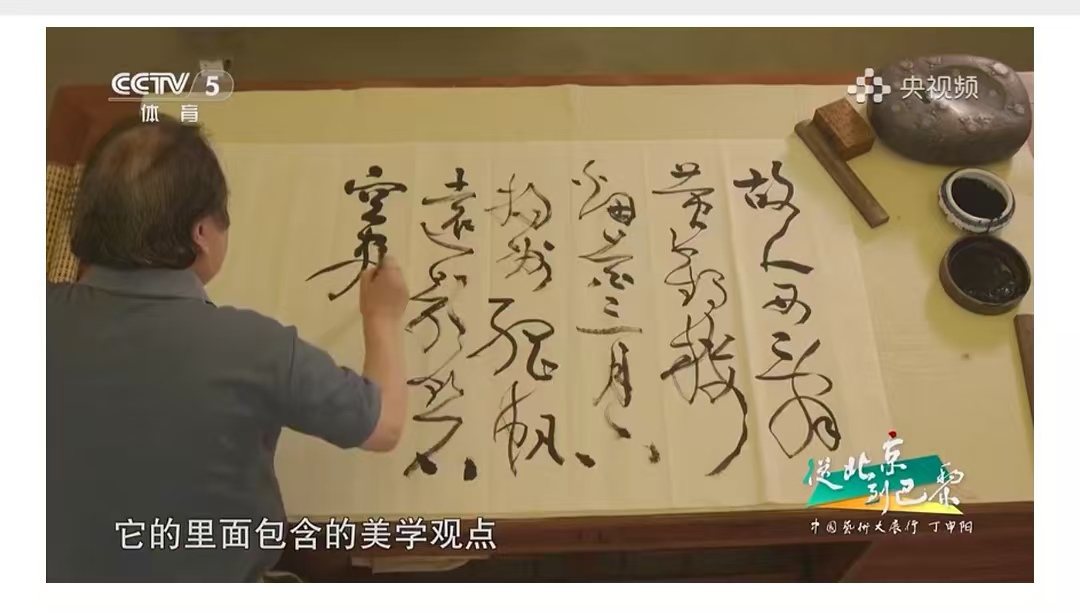 CCTV 5
体育
央视频
故人西辞
黄鹤楼
烟花三月下
扬州孤帆
遠影碧
空
從北京
到巴黎
中国藝術大展行 丁申阳
它的里面包含的美学观点